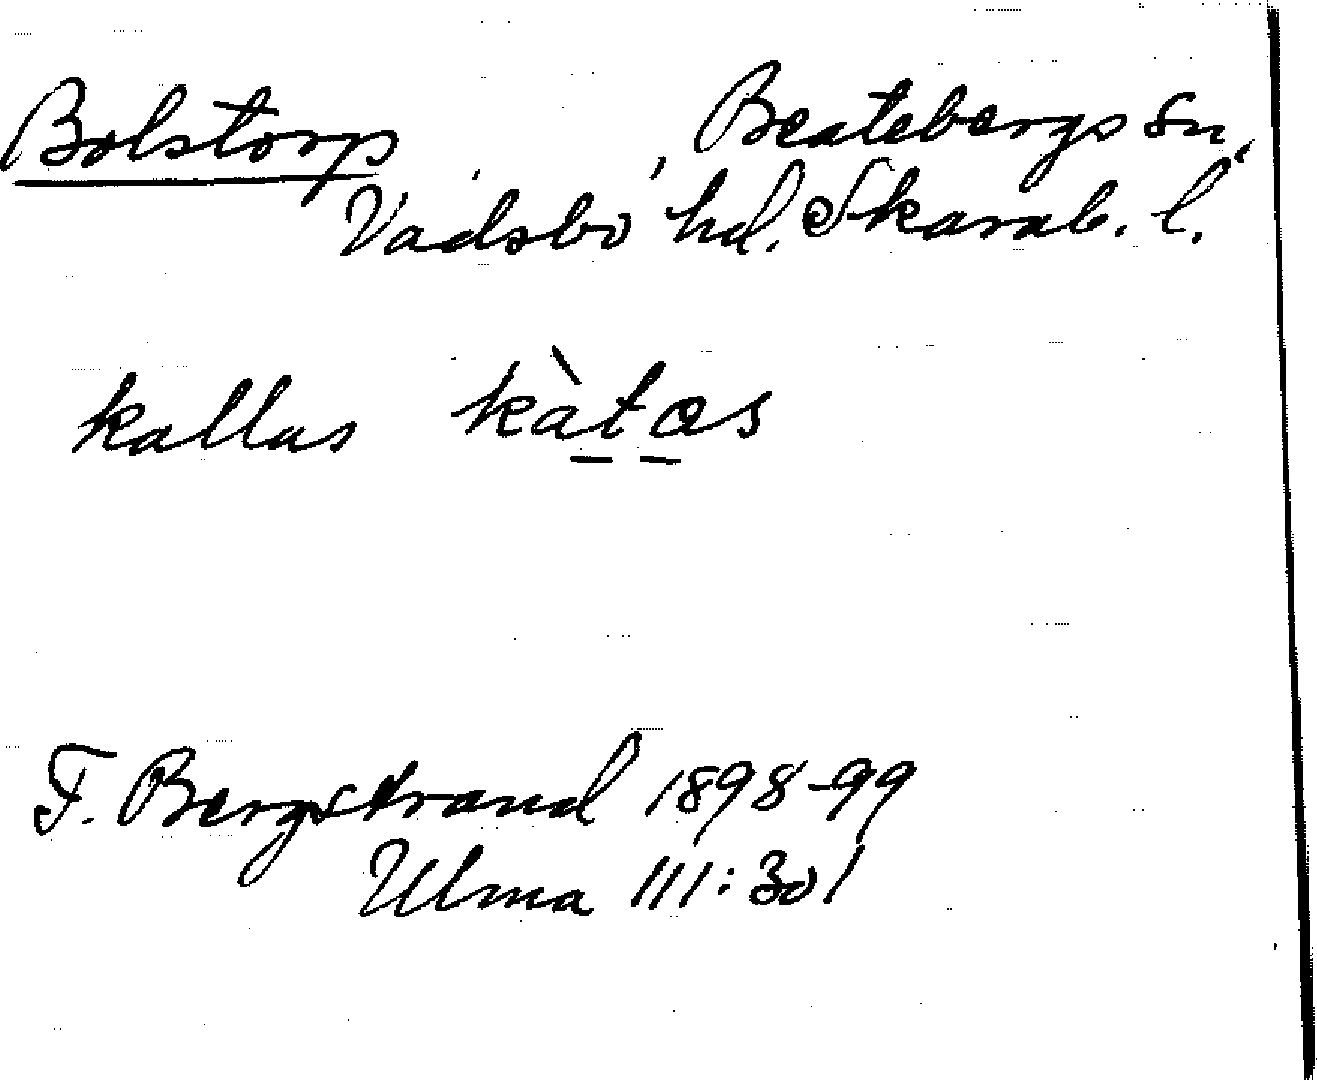 Bolstorp, Beatebergs sn,
Vadsbo hd. Skarab. l.
kallas kàtas
F. Bergstrand 1898-99
Ulma 111:301